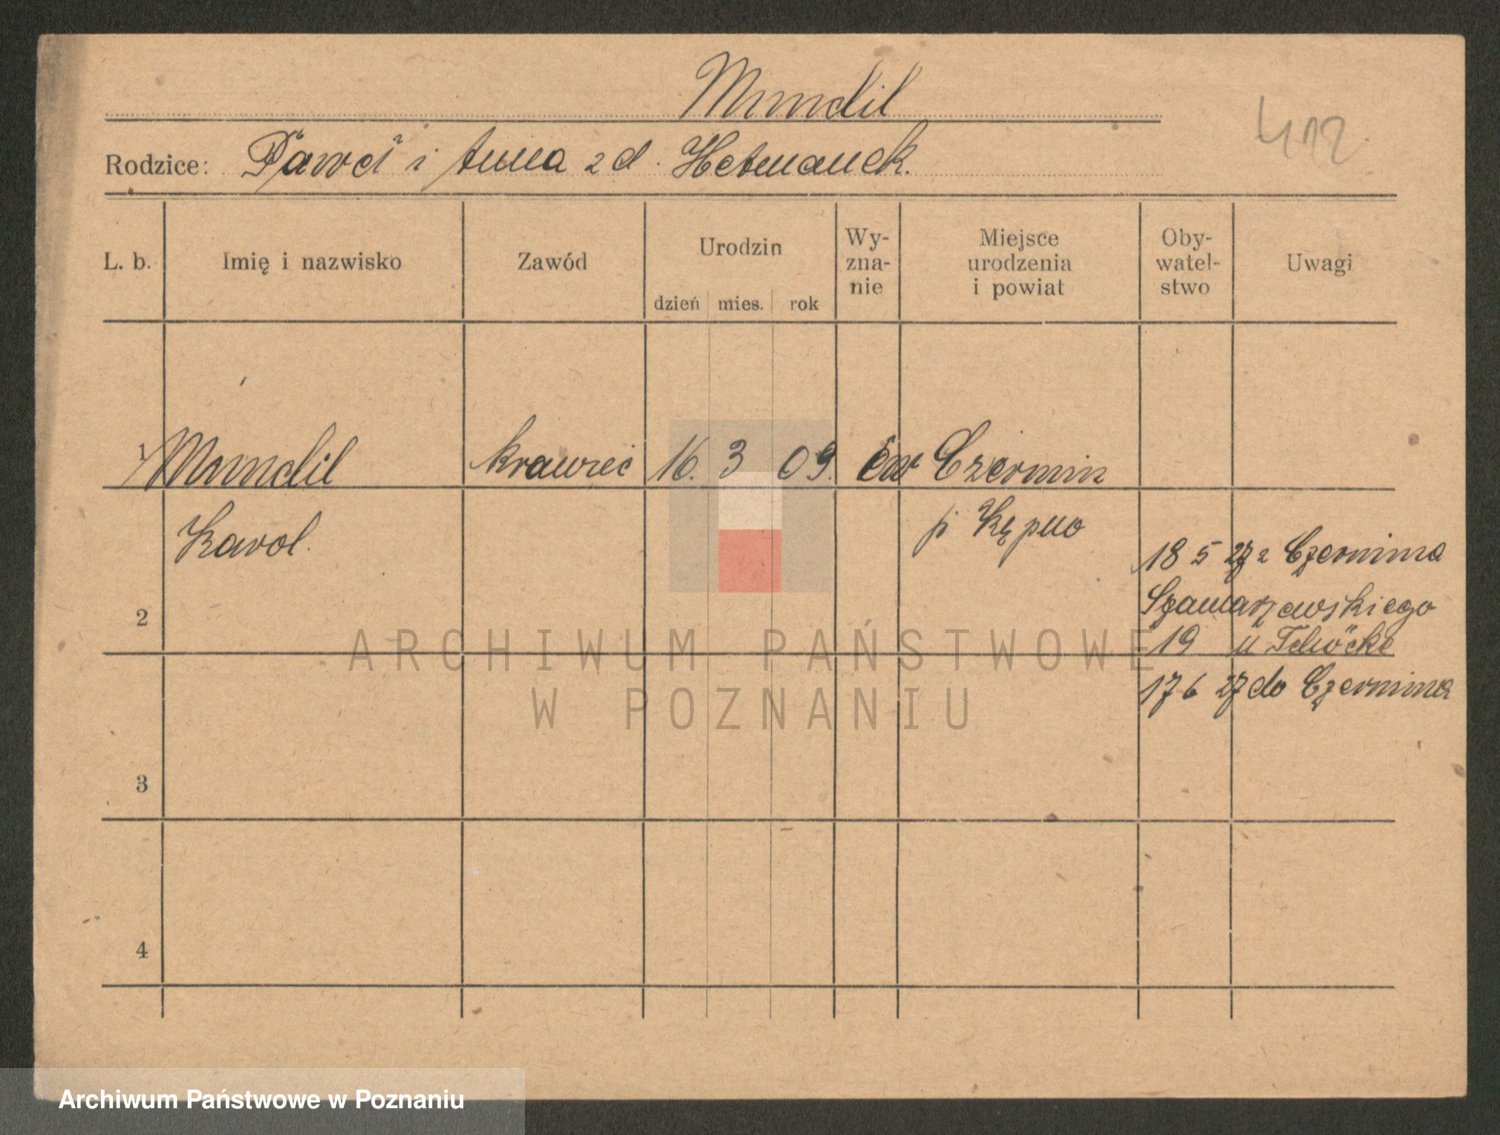 Mundil
412
Rodzice: Paweł i Anna z d. Hetmanek.
L. b. Imię i nazwisko Zawód Urodzin dzień mies. rok Wy-zna-nie Miejsce urodzenia i powiat Oby-watel-stwo Uwagi
1 Mundil krawiec 16. 3 09. Ew Czermin
Karol. p Kępno
18 5 27 z Czermina
2 Szamarzewskiego
19 u
17 6 27 do Czermina
3
4
ARCHIWUM PAŃSTWOWE
W POZNANIU
Archiwum Państwowe w Poznaniu